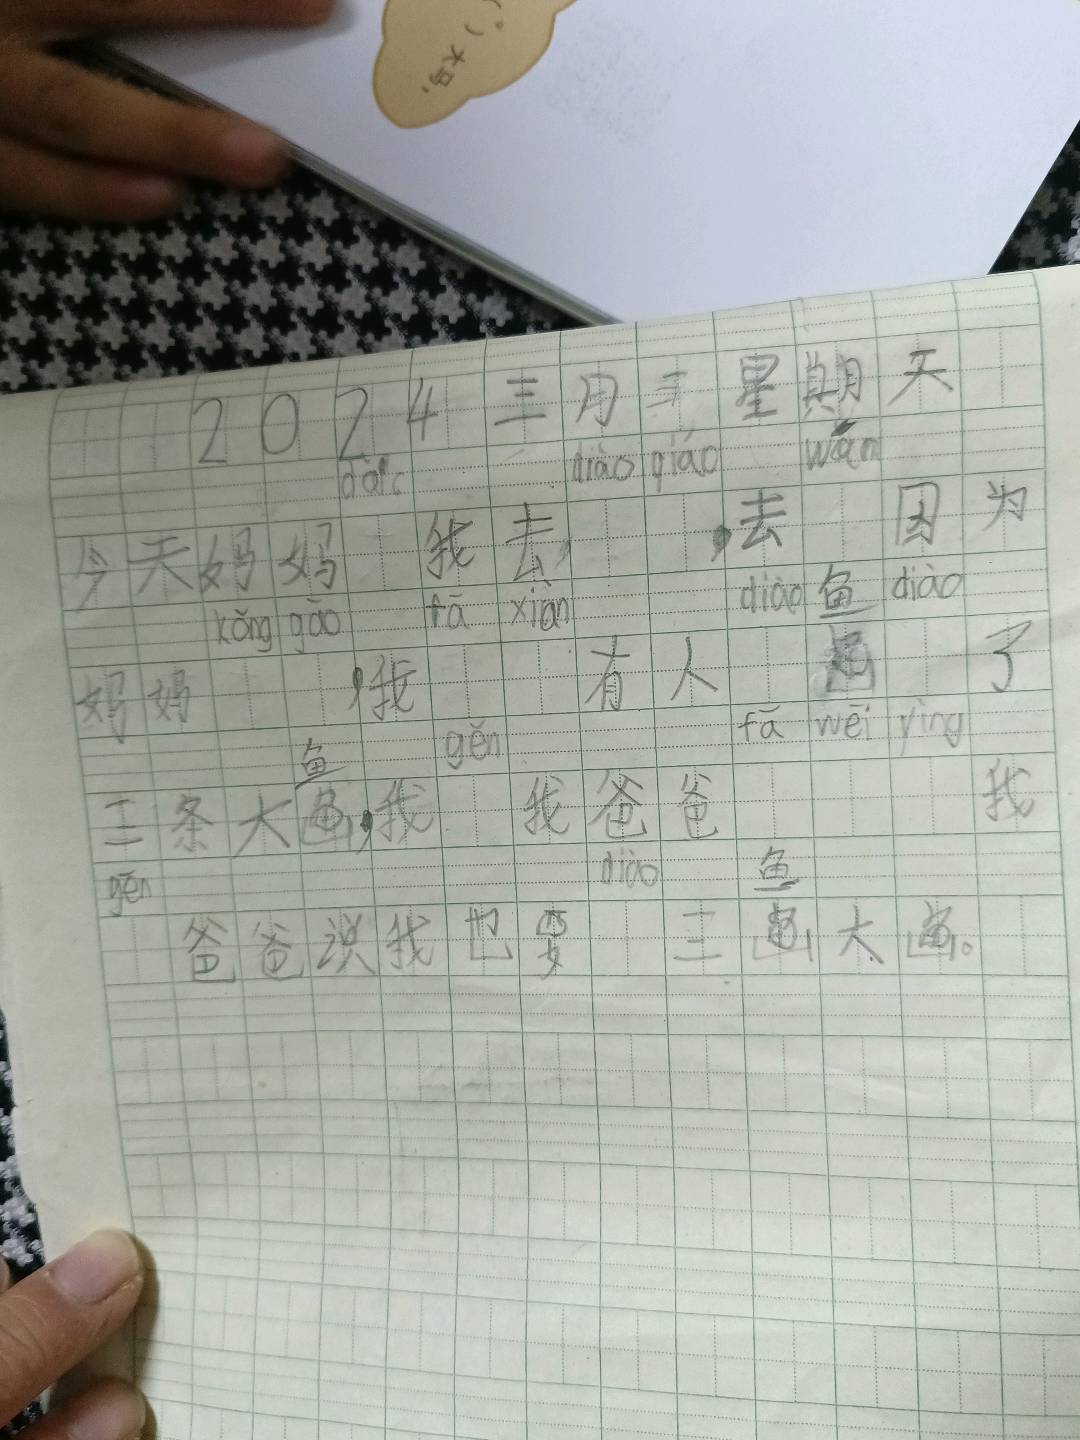 大鸟,
2024三月三星期天
dài diào qiáo wán
今天妈妈 我去 ,去 因为
kǒng gāo fā xiàn diào 鱼 diào
妈妈 ,我 有人 了
鱼 gěn fā wēi yìng
三条大鱼,我 我爸爸 我
gēn diào 鱼
爸爸说我也要 三 大 。